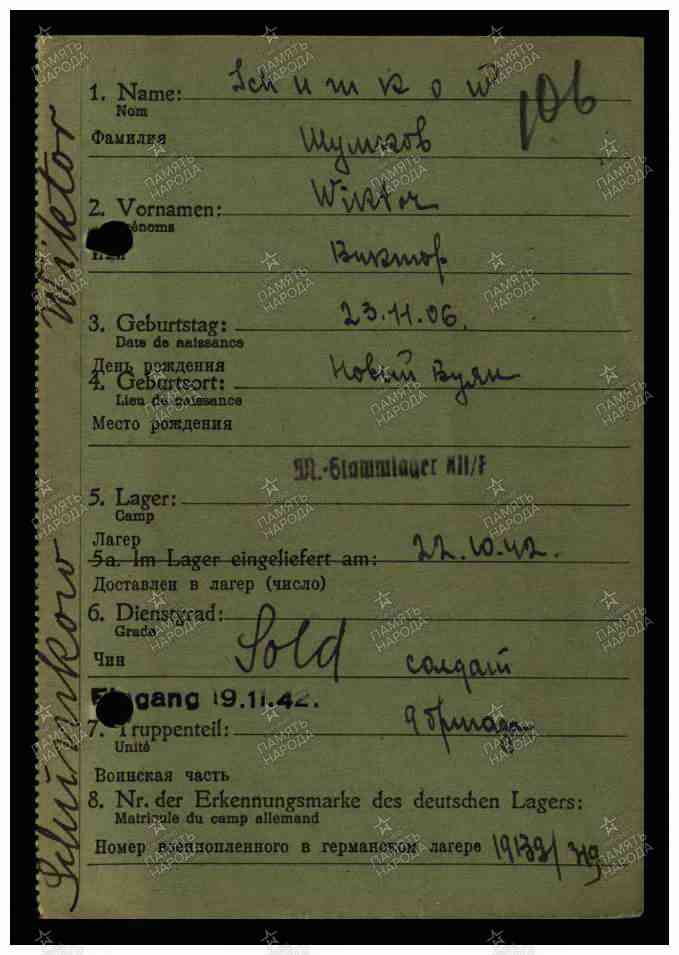 1. Name: Schumkow
106
Nom
Фамилия Шумков
2. Vornamen: Wiktor
énoms
Виктор
3. Geburtstag: 23.11.06.
Date de naissance
День рождения
4. Geburtsort: Новый Буян
Lieu de naissance
Место рождения
M.-Stammlager XII/F
5. Lager:
Camp
Лагер
5a. Im Lager eingeliefert am: 22.10.42.
Доставлен в лагер (число)
6. Dienstgrad:
Grade
Чин Sold солдат
Eingang 19.11.42.
7. Truppenteil: 9 бригада
Unité
Воинская часть
8. Nr. der Erkennungsmarke des deutschen Lagers:
Matricule du camp allemand
Номер военнопленного в германском лагере 19139/319
Schumkow Wiktor
ПАМЯТЬ НАРОДА